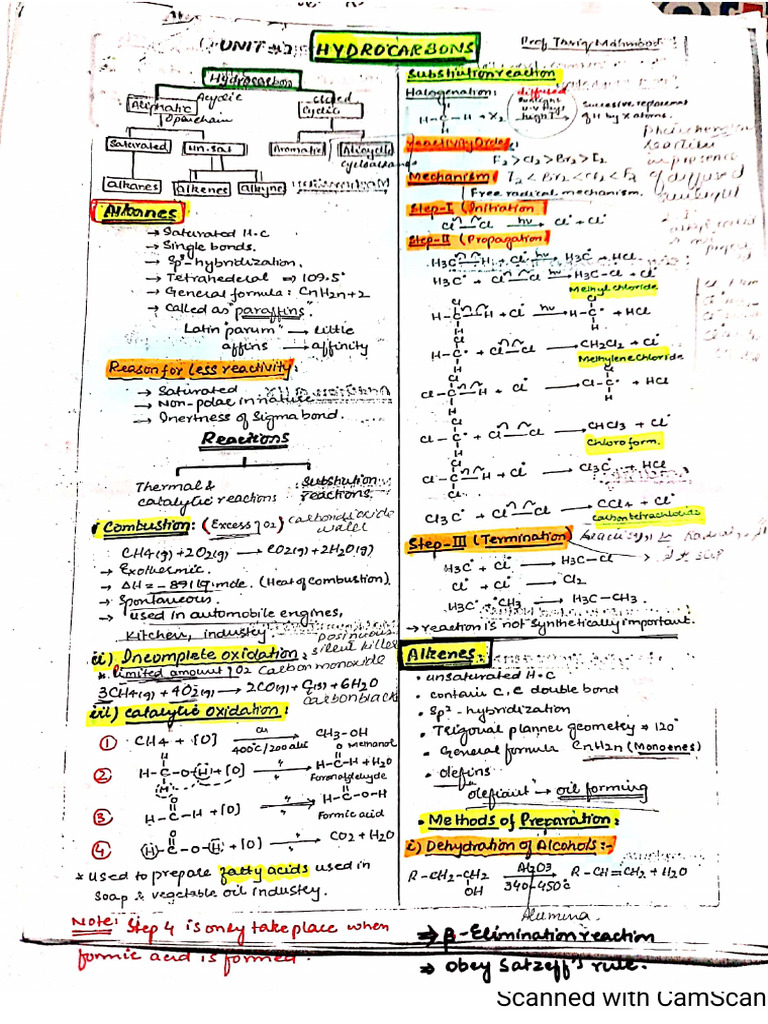 UNIT #2 HYDROCARBONS
Prof Thariq Mahmood
Hydrocarbon
Acyclic
closed
Aliphatic
Cyclic
Openchain
Saturated
Un-sat
Aromatic
Alicyclic
alkanes
alkenes
alkynes
Alkanes
→ Saturated H.C
→ Single bonds.
→ Sp³-hybridization.
→ Tetrahederal ⇒ 109.5°
→ General formula: CnH2n+2
→ called as "paraffins".
Latin "parum" → little
affins → affinity
Reason for Less reactivity:
→ Saturated
→ Non-polar in nature
→ Inertness of Sigma bond.
Reactions
Thermal &
catalytic reactions
Substitution
reactions
i) Combustion: (Excess O2)
CH4(g)+2O2(g) → CO2(g)+2H2O(g)
→ Exothermic.
→ ΔH = -891 kJ mole. (Heat of combustion)
→ Spontaneous.
→ used in automobile engines,
Kitchen, industry.
silent killer
ii) Incomplete oxidation:
* limited amount O2 Carbon monoxide
3CH4(g) + 4O2(g) → 2CO(g) + C(s) + 6H2O
carbon black
iii) Catalytic Oxidation:
① CH4 + [O] Cu 400°C/200atm CH3-OH
Methanol
② H-C-O-H + [O] → H-C-H + H2O
Formaldehyde
③ H-C-H + [O] → H-C-O-H
Formic acid
④ H-C-O-H + [O] → CO2 + H2O
* used to prepare fatty acids used in
soap & vegetable oil industry.
Note: Step 4 is only take place when
formic acid is formed.
Substitution reaction
Halogenation:
diffused
sunlight
U.V Rays
high T
H-C-H + X2 →
Successive replacement
of H by X atoms.
Reactivity Order:
F2 > Cl2 > Br2 > I2
I2 < Br2 < Cl2 < F2
Mechanism
Free radical mechanism.
Photochemical
reaction
in presence
of diffused
sunlight
Step-I (Initiation)
Cl-Cl hν → Cl• + Cl•
Step-II (Propagation)
H3C-H + Cl-Cl hν → H3C• + HCl
H3C• + Cl-Cl hν → H3C-Cl + Cl•
Methyl chloride
H-C-H + Cl• hν → H-C• + HCl
H-C• + Cl-Cl → CH2Cl2 + Cl•
Methylene chloride
Cl-C-H + Cl• → Cl-C• + HCl
Cl-C• + Cl-Cl → CHCl3 + Cl•
Chloroform.
Cl-C-H + Cl• → Cl3C• + HCl
Cl3C• + Cl-Cl → CCl4 + Cl•
Carbon tetrachloride
Step-III (Termination)
H3C• + Cl• → H3C-Cl
Cl• + Cl• → Cl2
H3C• + •CH3 → H3C-CH3.
→ reaction is not synthetically important.
Alkenes:
• unsaturated H.C
• contain C,C double bond
• Sp²-hybridization
• Trigonal planner geometry ⇒ 120°
• General formula CnH2n (Monoenes)
• olefins
"olefiant" → oil forming
• Methods of Preparation:
i) Dehydration of Alcohols:-
R-CH2-CH2 Al2O3 R-CH=CH2 + H2O
OH 340-450°c
Alumina.
⇒ β-Elimination reaction
⇒ obey Satzeff's rule.
Scanned with CamScan